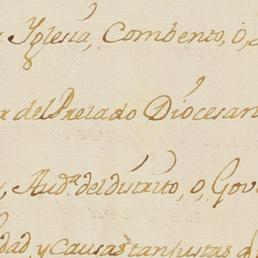 Yglesia, Combento, ó,
del Prelado Diocesan
Aud.ª del distrito, o, Gov
dad, y causas tan justas q